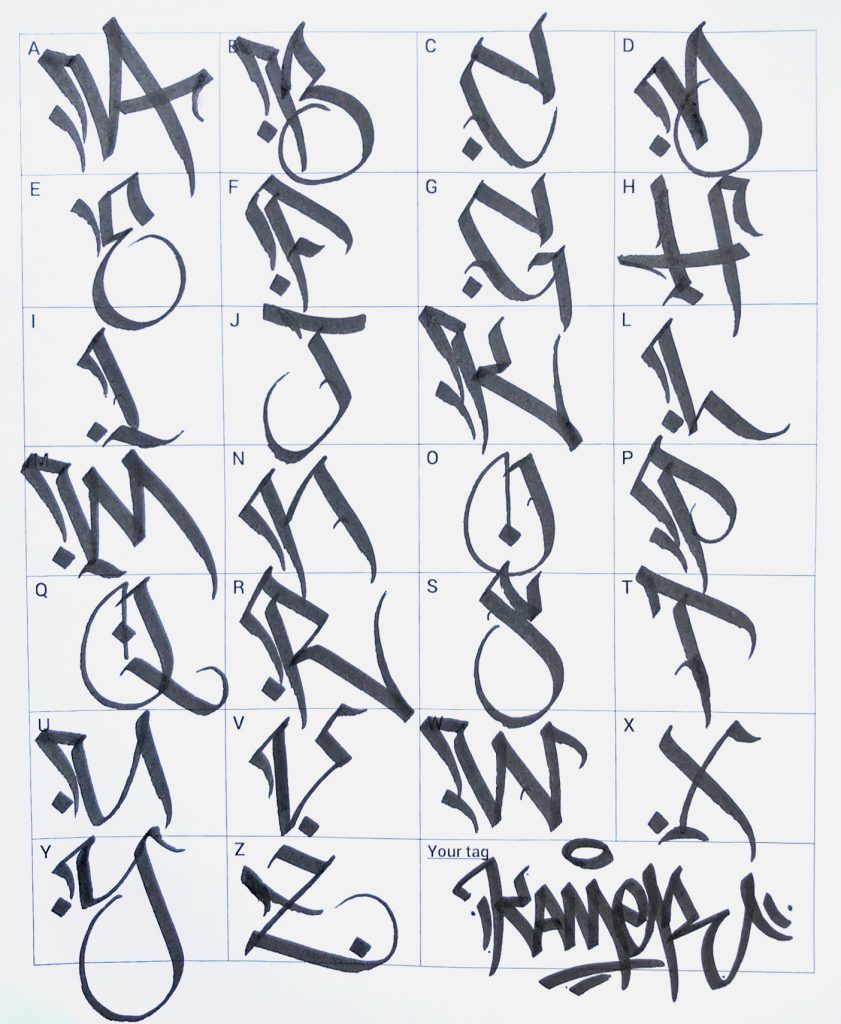 A B C D
A B C D
E F G H
E F G H
I J K L
I J K L
M N O P
M N O P
Q R S T
Q R S T
U V W X
U V W X
Y Z Your tag
Y Z KAMER